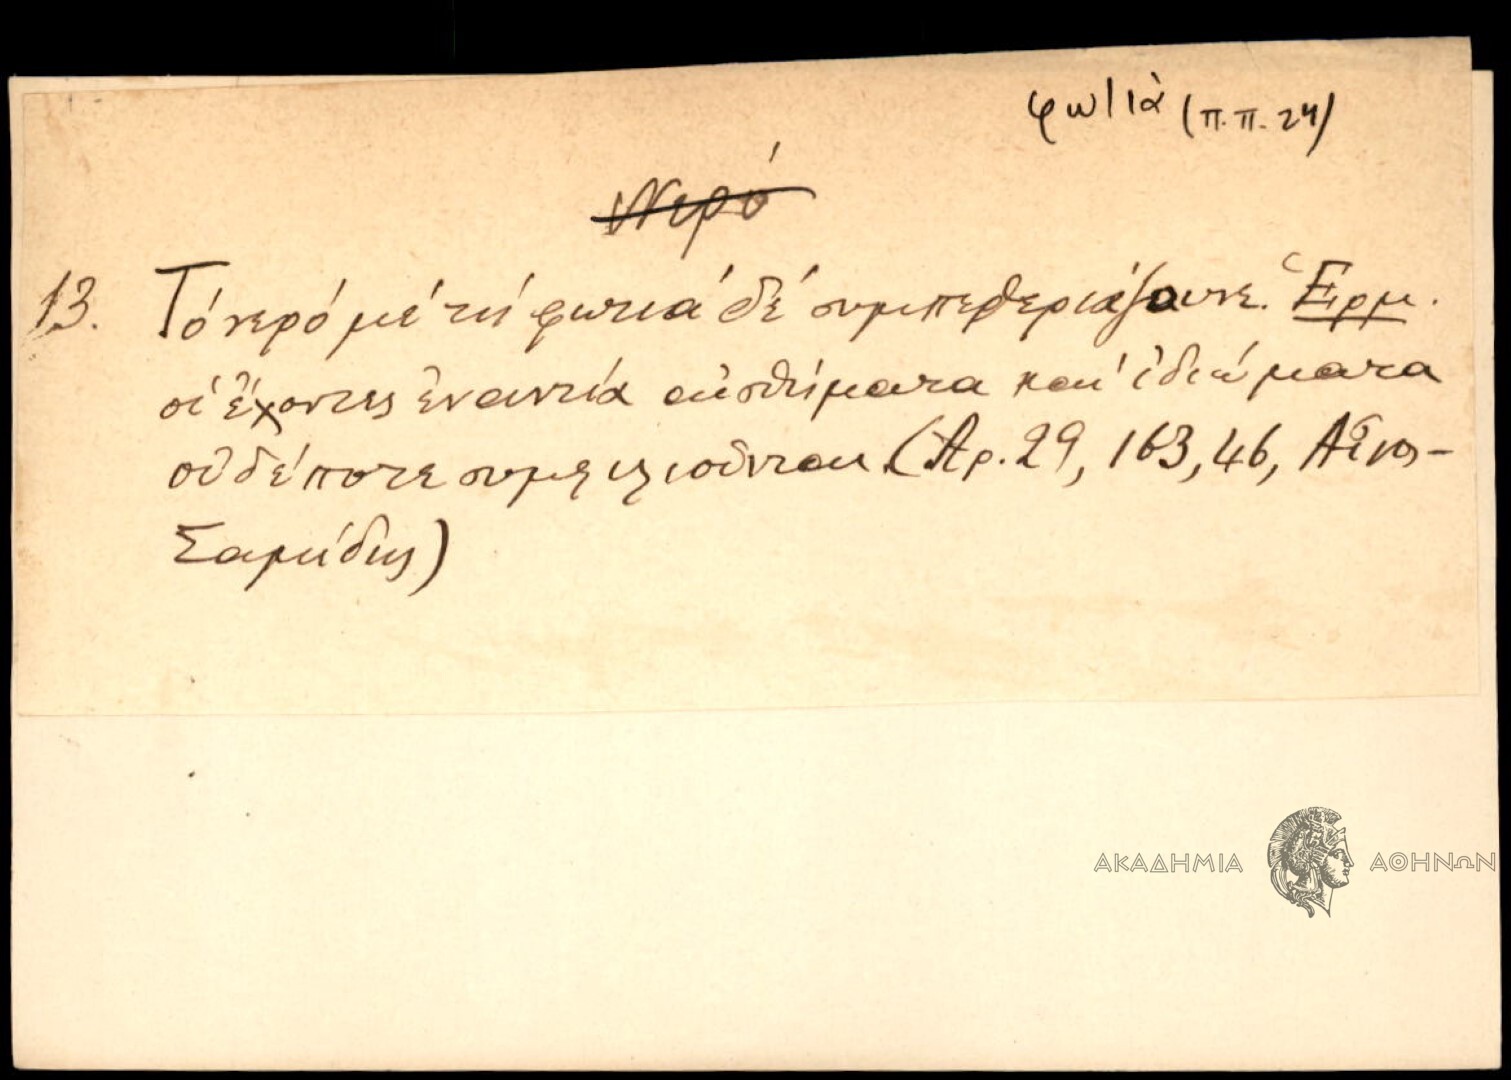 φωτιά (π.π. 24)
Νερό
13. Τό νερό μέ τή φωτιά δέ συμπεθεριάζουνε. Ἑρμ.
οἱ ἔχοντες ἐναντία αἰσθήματα καί ἰδιώματα
οὐδέποτε συμφιλιοῦνται (Ἀρ. 29, 163, 46, Αἶνος-
Σαμίδης)
ΑΚΑΔΗΜΙΑ ΑΘΗΝΩΝ